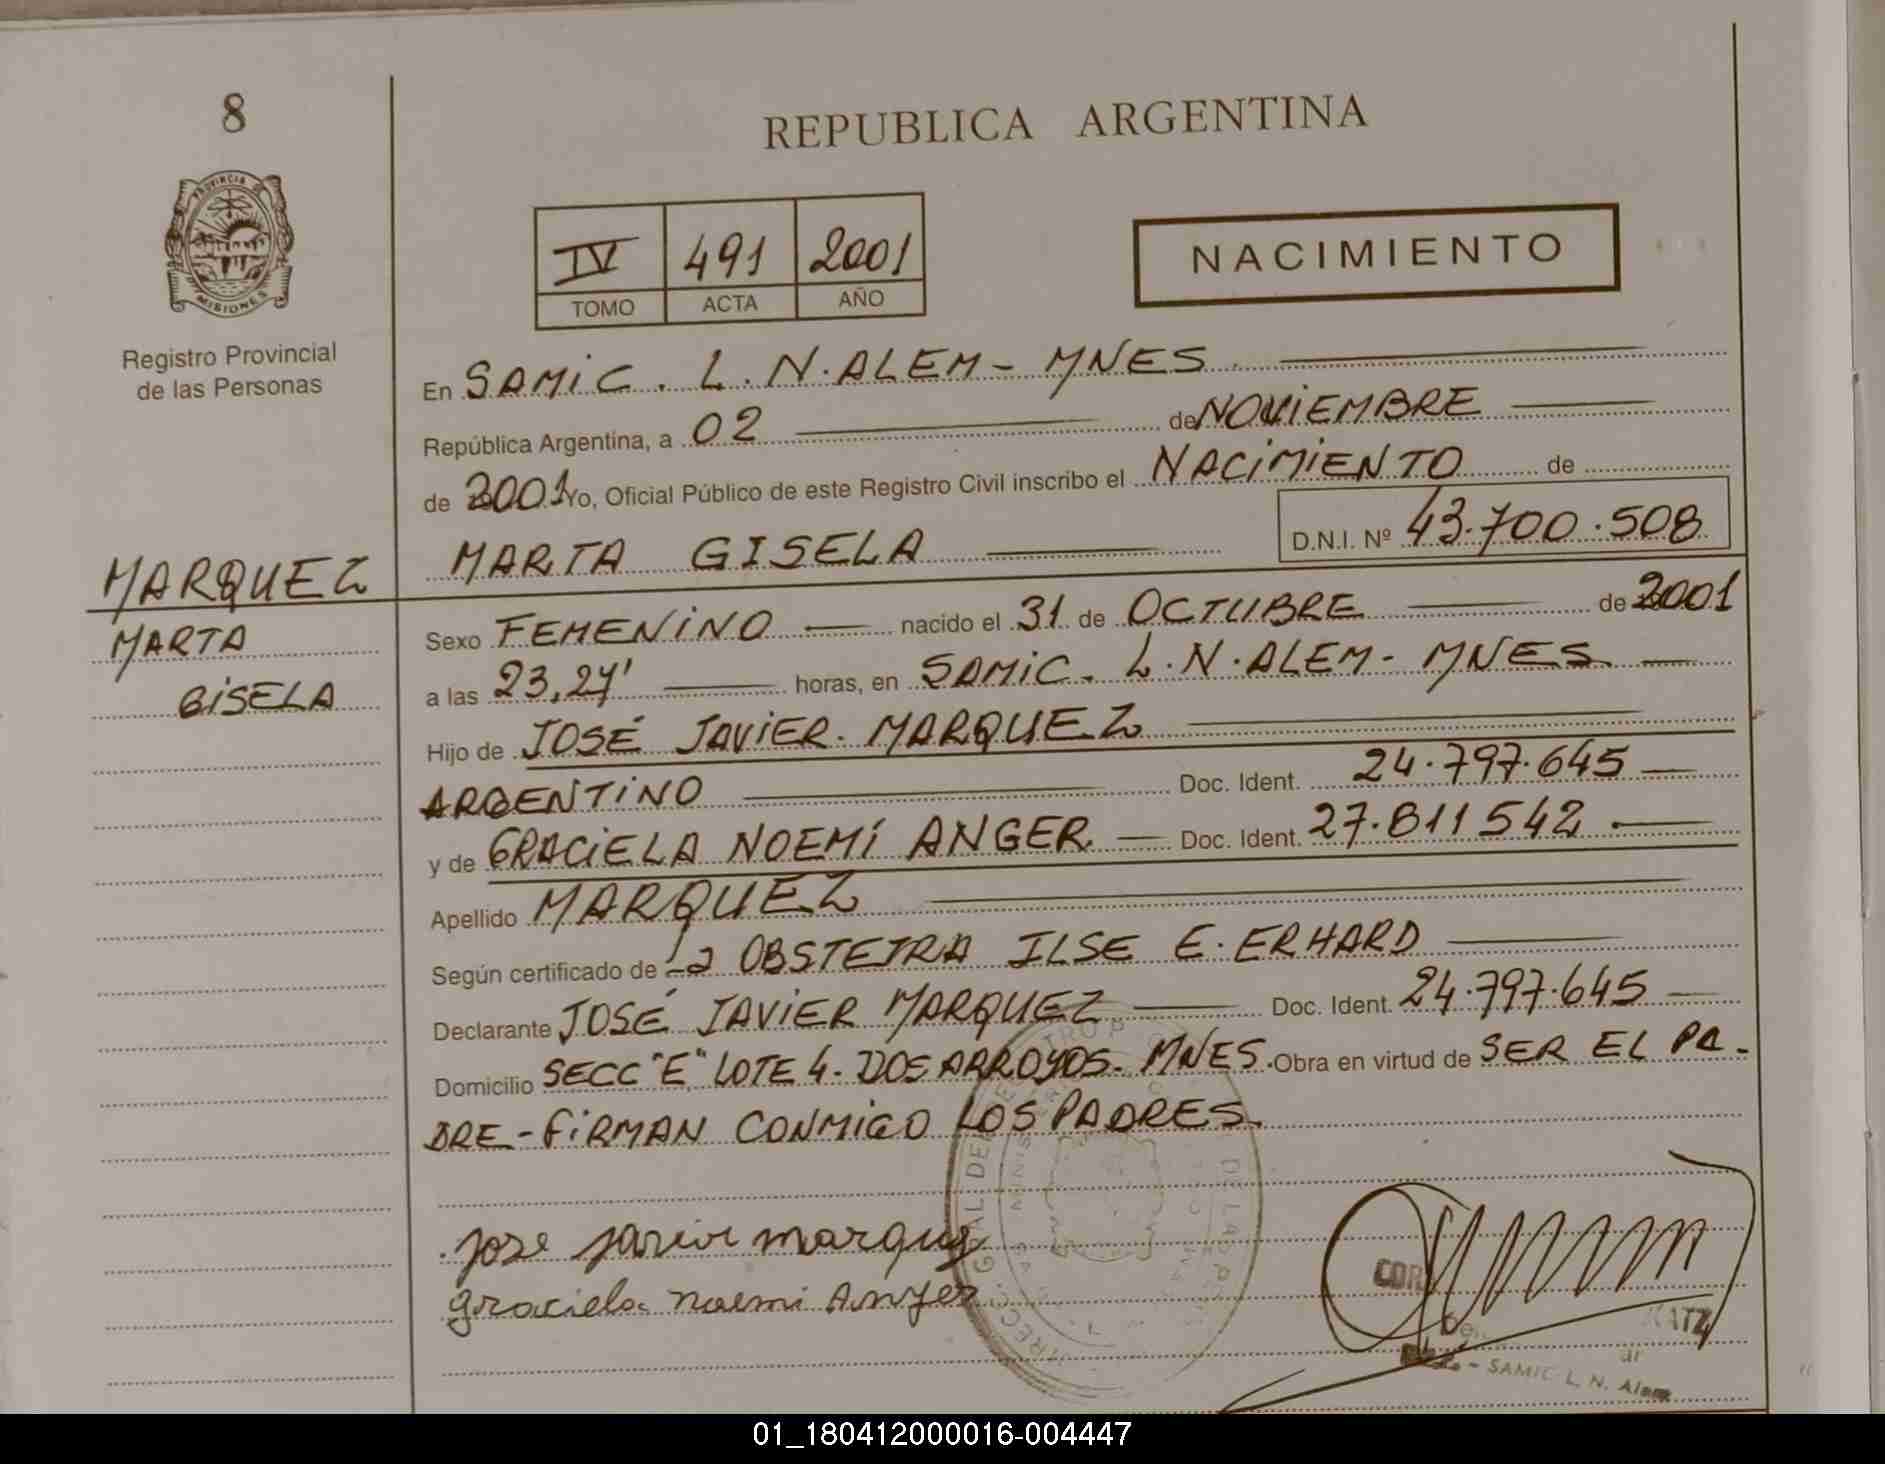 8
PROVINCIA DE
MISIONES
Registro Provincial
de las Personas
MARQUEZ
MARTA
GISELA
REPUBLICA ARGENTINA
IV 491 2001
TOMO ACTA AÑO
NACIMIENTO
En SAMIC. L.N.ALEM - MNES.
República Argentina, a 02 de NOVIEMBRE
de 2001 Yo, Oficial Público de este Registro Civil inscribo el NACIMIENTO de
MARTA GISELA D.N.I. Nº 43.700.508
Sexo FEMENINO nacido el 31 de OCTUBRE de 2001
a las 23,27' horas, en SAMIC. L.N.ALEM - MNES
Hijo de JOSÉ JAVIER MARQUEZ
ARGENTINO Doc. Ident. 24.797.645
y de GRACIELA NOEMÍ ANGER Doc. Ident. 27.811542
Apellido MARQUEZ
Según certificado de La OBSTETRA ILSE E. ERHARD
Declarante JOSÉ JAVIER MARQUEZ Doc. Ident. 24.797.645
Domicilio SECC "E" LOTE 4. DOS ARROYOS. MNES. Obra en virtud de SER EL PA-
DRE - FIRMAN CONMIGO LOS PADRES.
Jose Javier Marquez
Graciela Noemi Anger
COR
KATZ
- SAMIC L. N. Alem
01_180412000016-004447